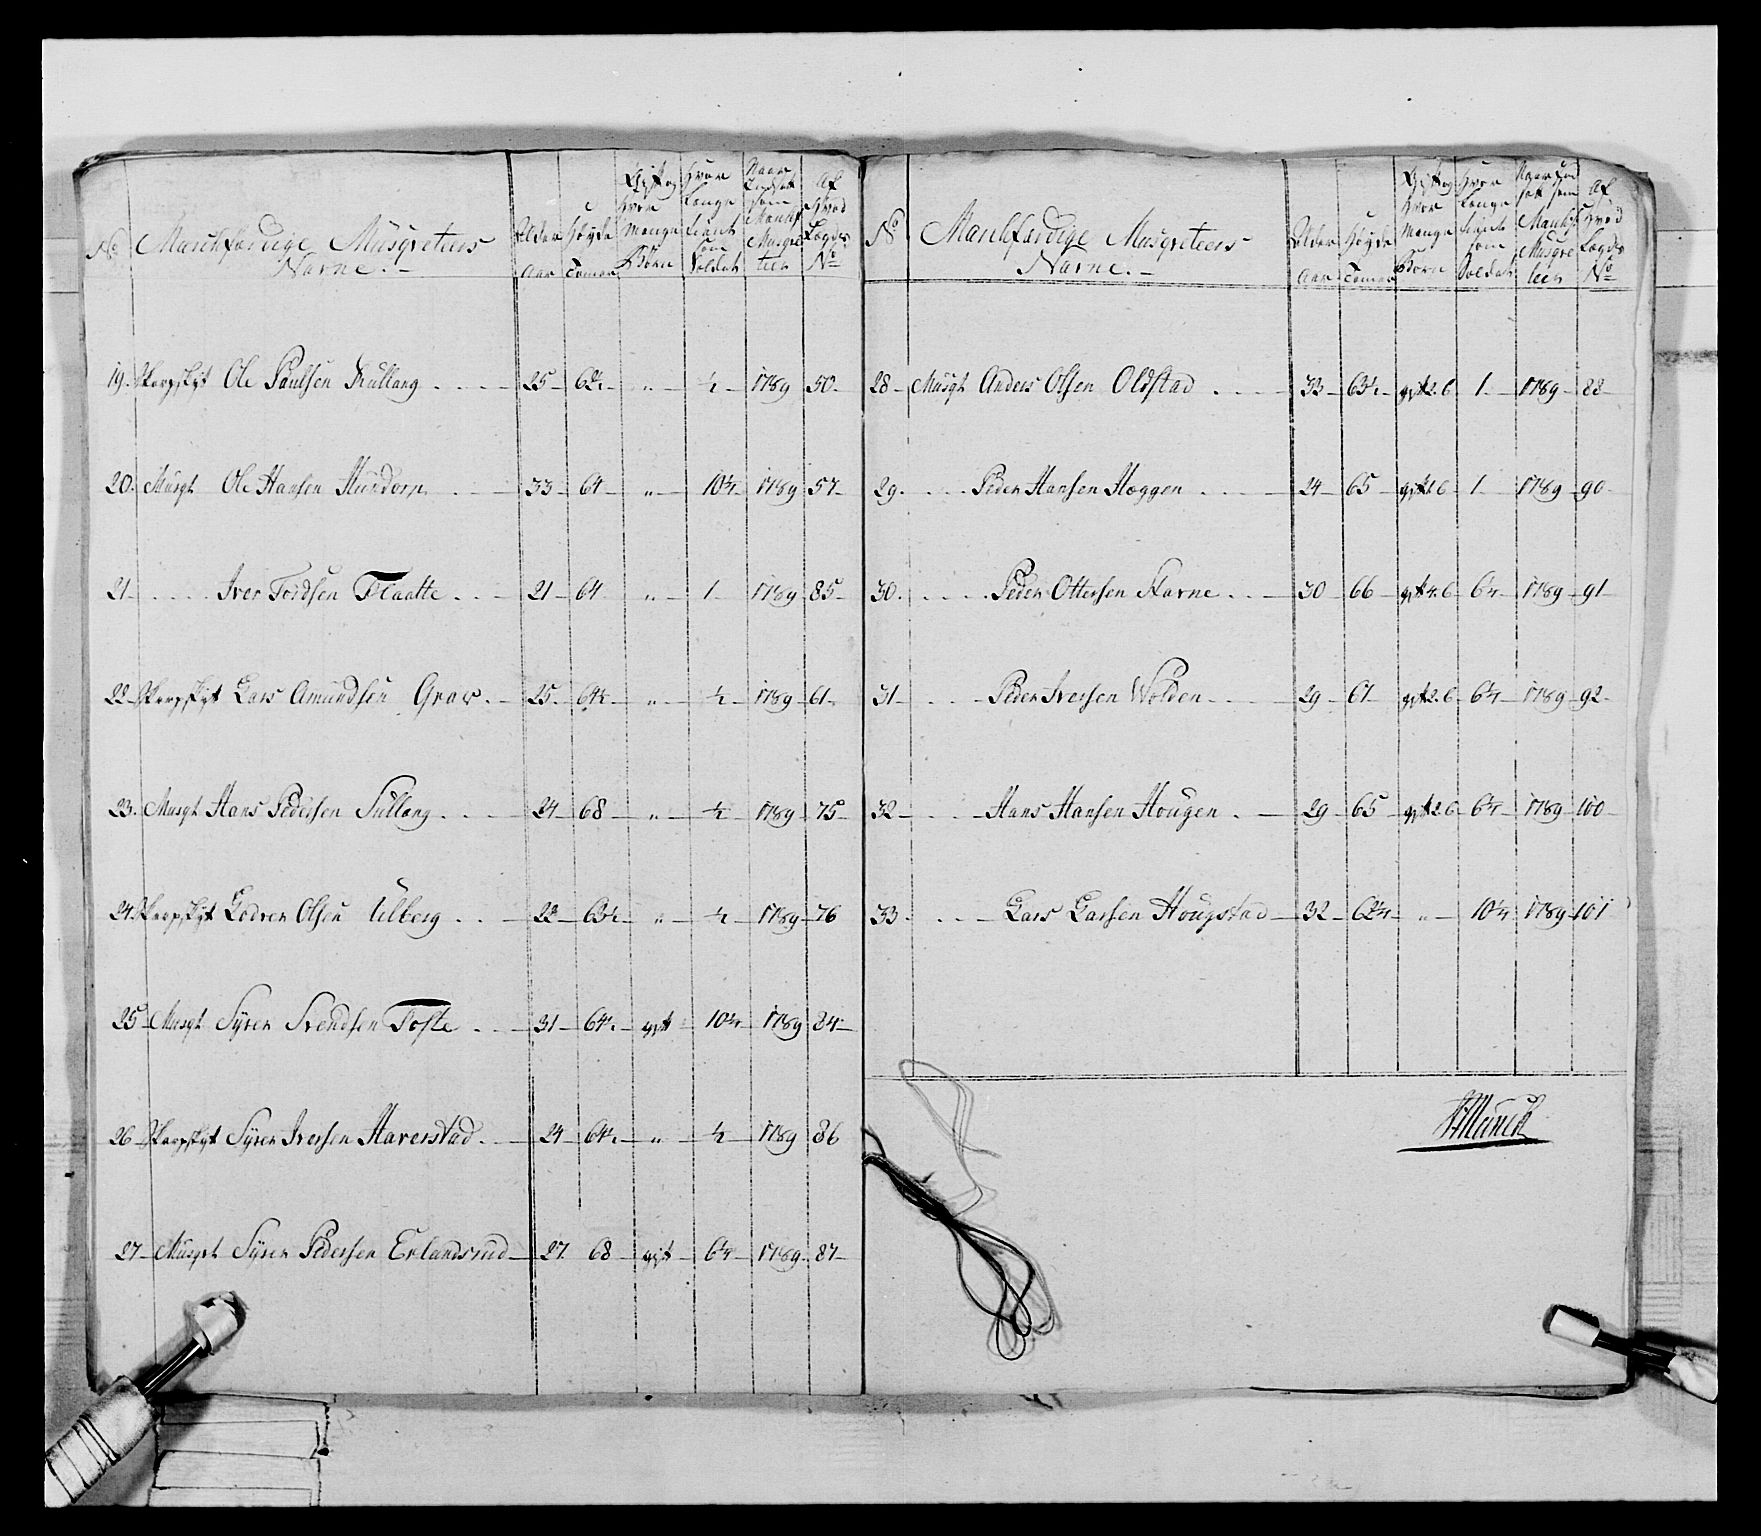 No Marchfærdige Musqveteers Navne.- Alder Aar Høyde Tomer Gift og hvor Mange Børn Hvor Længe tient som Soldat Naar Landsat som Marchf Musqveteer Af hvad Lægds No
19. Skarpskyt Ole Paulsen Kullang 25 62½ „ ½ 1789 50
20. Musqt Ole Hansen Hundorp 33 64 „ 10¼ 1789 57
21 Iver Tordsen Flaatte 21 64 „ 1 1789 85
22 Skarpskyt Lars Amundsen Grav 25 64½ „ ½ 1789 61
23. Musqt Hans Pedersen Sullang 24 68 „ ½ 1789 75
24. Skarpskyt Ole Ulberg 22 63½ „ ½ 1789 76
25 Musqt Syver Svendsen Tofte 31 64½ gift 10¼ 1789 84
26 Skarpskyt Syver Iversen Haverstad 24 64½ „ ½ 1789 86
27 Musqvt Syver Pedersen Erlandsrud 27 68 gift 6¼ 1789 87
No Marchfærdige Musqveteers Navne.- Alder Aar Høyde Tomer Gift og hvor Mange Børn Hvor Længe tient som Soldat Naar Landsat som Marchf Musqveteer Af hvad Lægds No
28 Musqt Anders Olsen Oldstad 33 63½ gift 2.b 1 1789 88
29. Peder Hansen Hæggen 24 65 gift 1 b 1 1789 90
30. Peder Ottersen Harne 30 66 gift 4.b 6¼ 1789 91
31 Peder Iversen Wolden 29 67 gift 2.b 6¼ 1789 92
32 Hans Hansen Hougen 29 65 gift 2 b 6¼ 1789 100
33. Lars Larsen Hougstad 32 62¼ „ 10¼ 1789 101
Munck